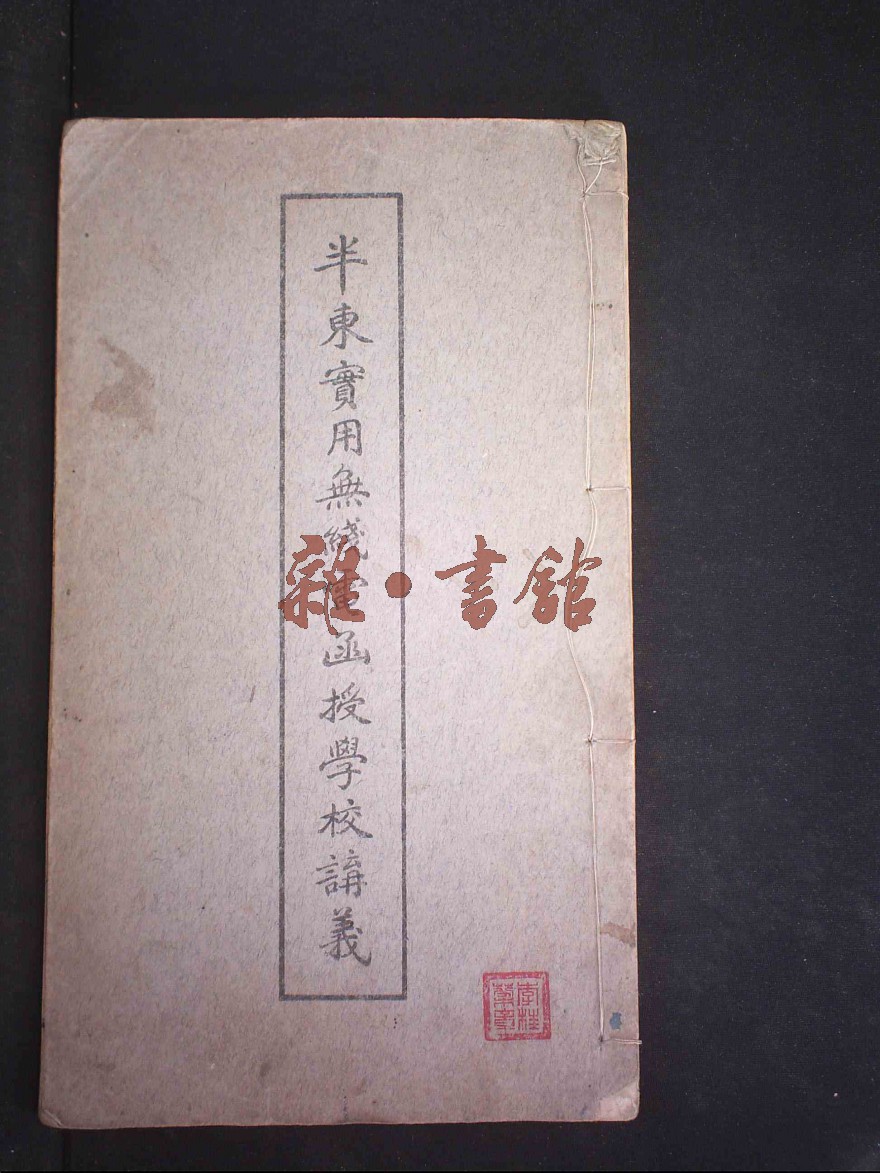 半東實用無綫電函授學校講義
雜·書館
李桂